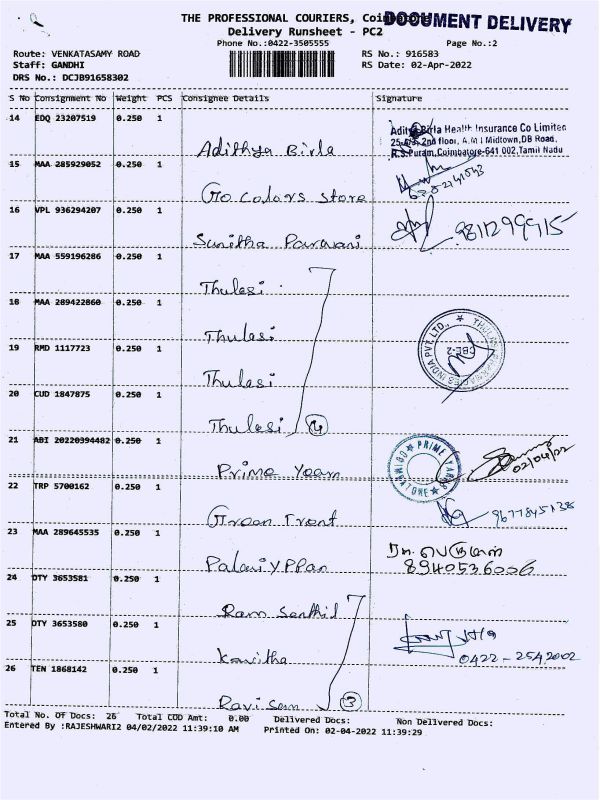 THE PROFESSIONAL COURIERS, Coimbatore
DOCUMENT DELIVERY
Delivery Runsheet - PC2
Phone No.:0422-3505555
Page No.:2
Route: VENKATASAMY ROAD
RS No.: 916583
Staff: GANDHI
RS Date: 02-Apr-2022
DRS No.: DCJB91658302
S No Consignment No Weight PCS Consignee Details Signature
14 EDQ 23207519 0.250 1
Adithya Birla
Aditya Birla Health Insurance Co Limited
2nd floor, A.M.I Midtown,DB Road,
R.S.Puram,Coimbatore-641 002,Tamil Nadu
15 MAA 285929052 0.250 1
Go colors store
16 VPL 936294207 0.250 1
Sunitha
17 MAA 559196286 0.250 1
Thulasi
18 MAA 289422860 0.250 1
Thulasi
19 RMD 1117723 0.250 1
Thulasi
20 CUD 1847875 0.250 1
Thulasi 4
INDIA PVT. LTD.,
CBE-2
21 ABI 20220394482 0.250 1
Prime Yaan
PRIME
02/04/22
22 TRP 5700162 0.250 1
Green Trent
23 MAA 289645535 0.250 1
Palaniyppan
8940536006
24 DTY 3653581 0.250 1
Ram Senthil
25 DTY 3653580 0.250 1
Kavitha
0422-2542002
26 TEN 1868142 0.250 1
Ravi Sam 3
Total No. Of Docs: 26 Total COD Amt: 0.00 Delivered Docs: Non Delivered Docs:
Entered By :RAJESHWARI2 04/02/2022 11:39:10 AM Printed On: 02-04-2022 11:39:29